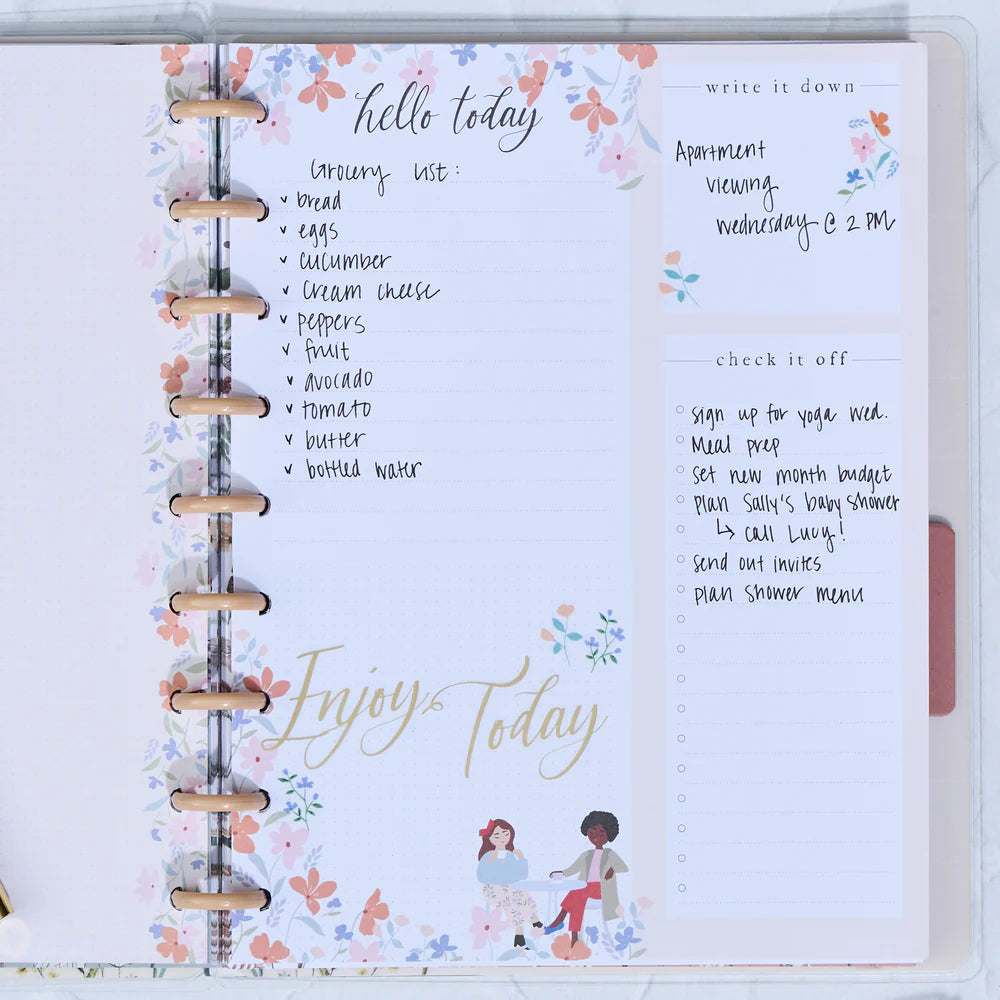 hello today
Grocery list:
✓ bread
✓ eggs
✓ cucumber
✓ Cream cheese
✓ peppers
✓ fruit
✓ avocado
✓ tomato
✓ butter
✓ bottled water
Enjoy Today
write it down
Apartment
viewing
wednesday @ 2 PM
check it off
sign up for yoga wed.
Meal prep
set new month budget
plan Sally's baby shower
↳ call Lucy!
send out invites
plan shower menu